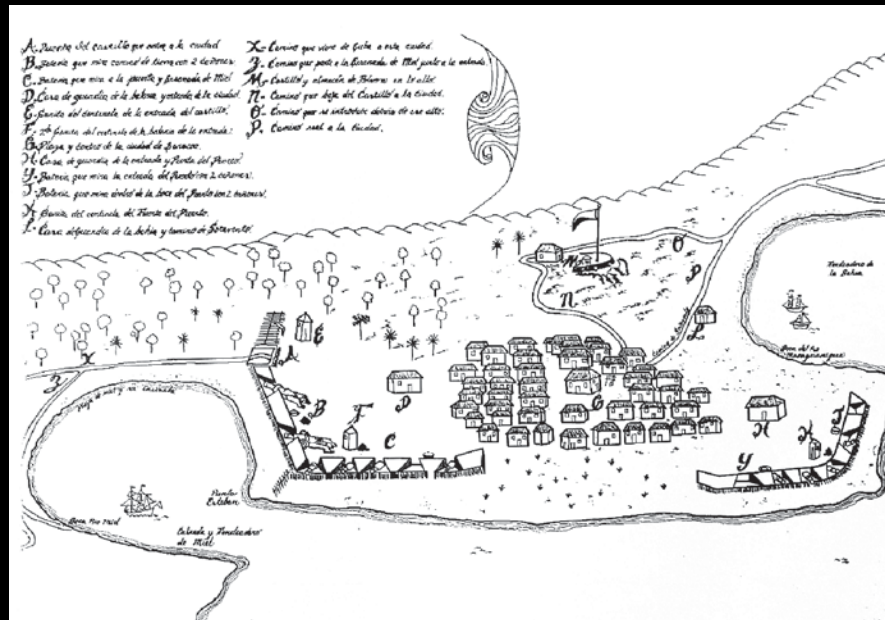 A. Puerta del castillo que mira a la ciudad
B. Bateria que mira camino de tierra con 2 cañones.
C. Bateria que mira a la puerta y Ensenada de Miel
D. Casa de guardia de la batería y entrada de la ciudad.
E. Garita del centinela de la entrada del castillo.
F. 2ª Garita del centinela de la bateria de la entrada.
G. Plaza y centro de la ciudad de Baracoa.
H. Casa de guardia de la entrada y Punta del Puerto.
Y. Bateria que mira la entrada del Puerto con 2 cañones.
J. Bateria que mira dentro de la boca del Puerto con 2 cañones.
K. Garita del centinela del Fuerte del Puerto.
L. Casa de guardia de la bahia y camino de
X. Camino que viene de Cuba a esta ciudad.
Z. Camino que parte a la Ensenada de Miel junto a la entrada.
M. Castillo y almacén de en lo alto
N. Camino que baja del Castillo a la ciudad.
O. Camino que se introduce detrás de ese alto.
P. Camino real a la Ciudad.
M
O
P
N
L
E
A
X
Z
B
F
D
C
G
H
K
J
Y
Fondeadero de
la Bahia
Boca del Rio
Playa de miel
Punta
Esteban
Boca Rio Miel
Ensenada y Fondeadero
de Miel